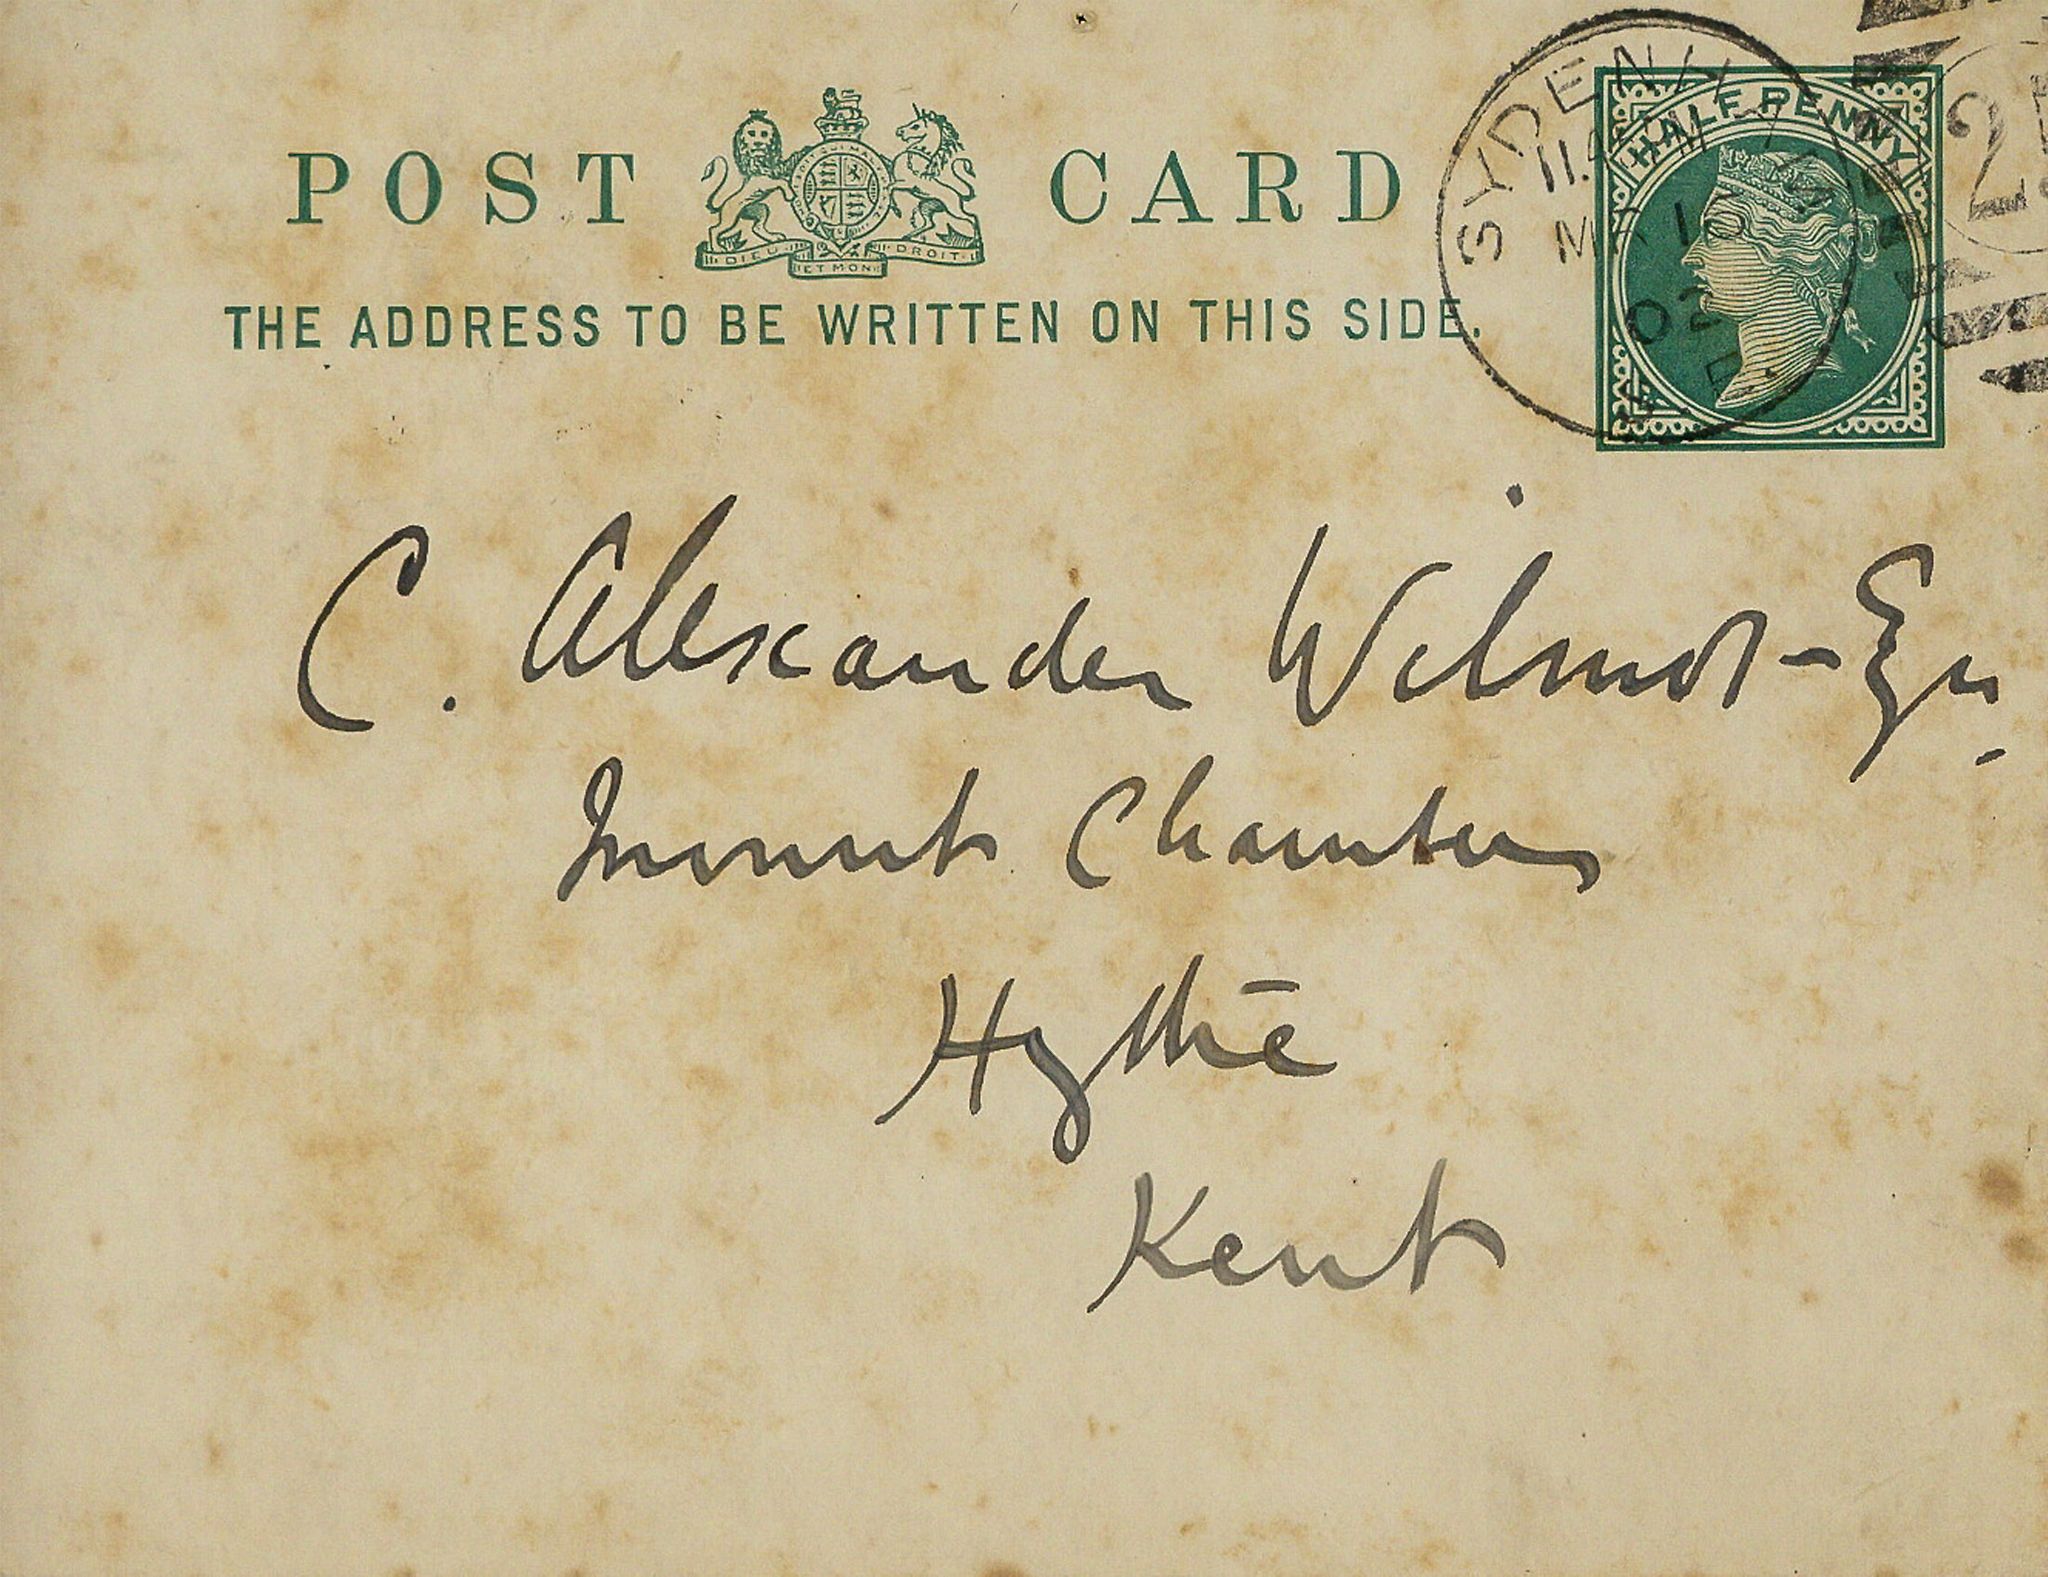 POST CARD
DIEU ET MON DROIT
THE ADDRESS TO BE WRITTEN ON THIS SIDE.
HALFPENNY
SYDENHAM
02
C. Alexander Wilmot - Esq
Chambers
Hythe
Kent